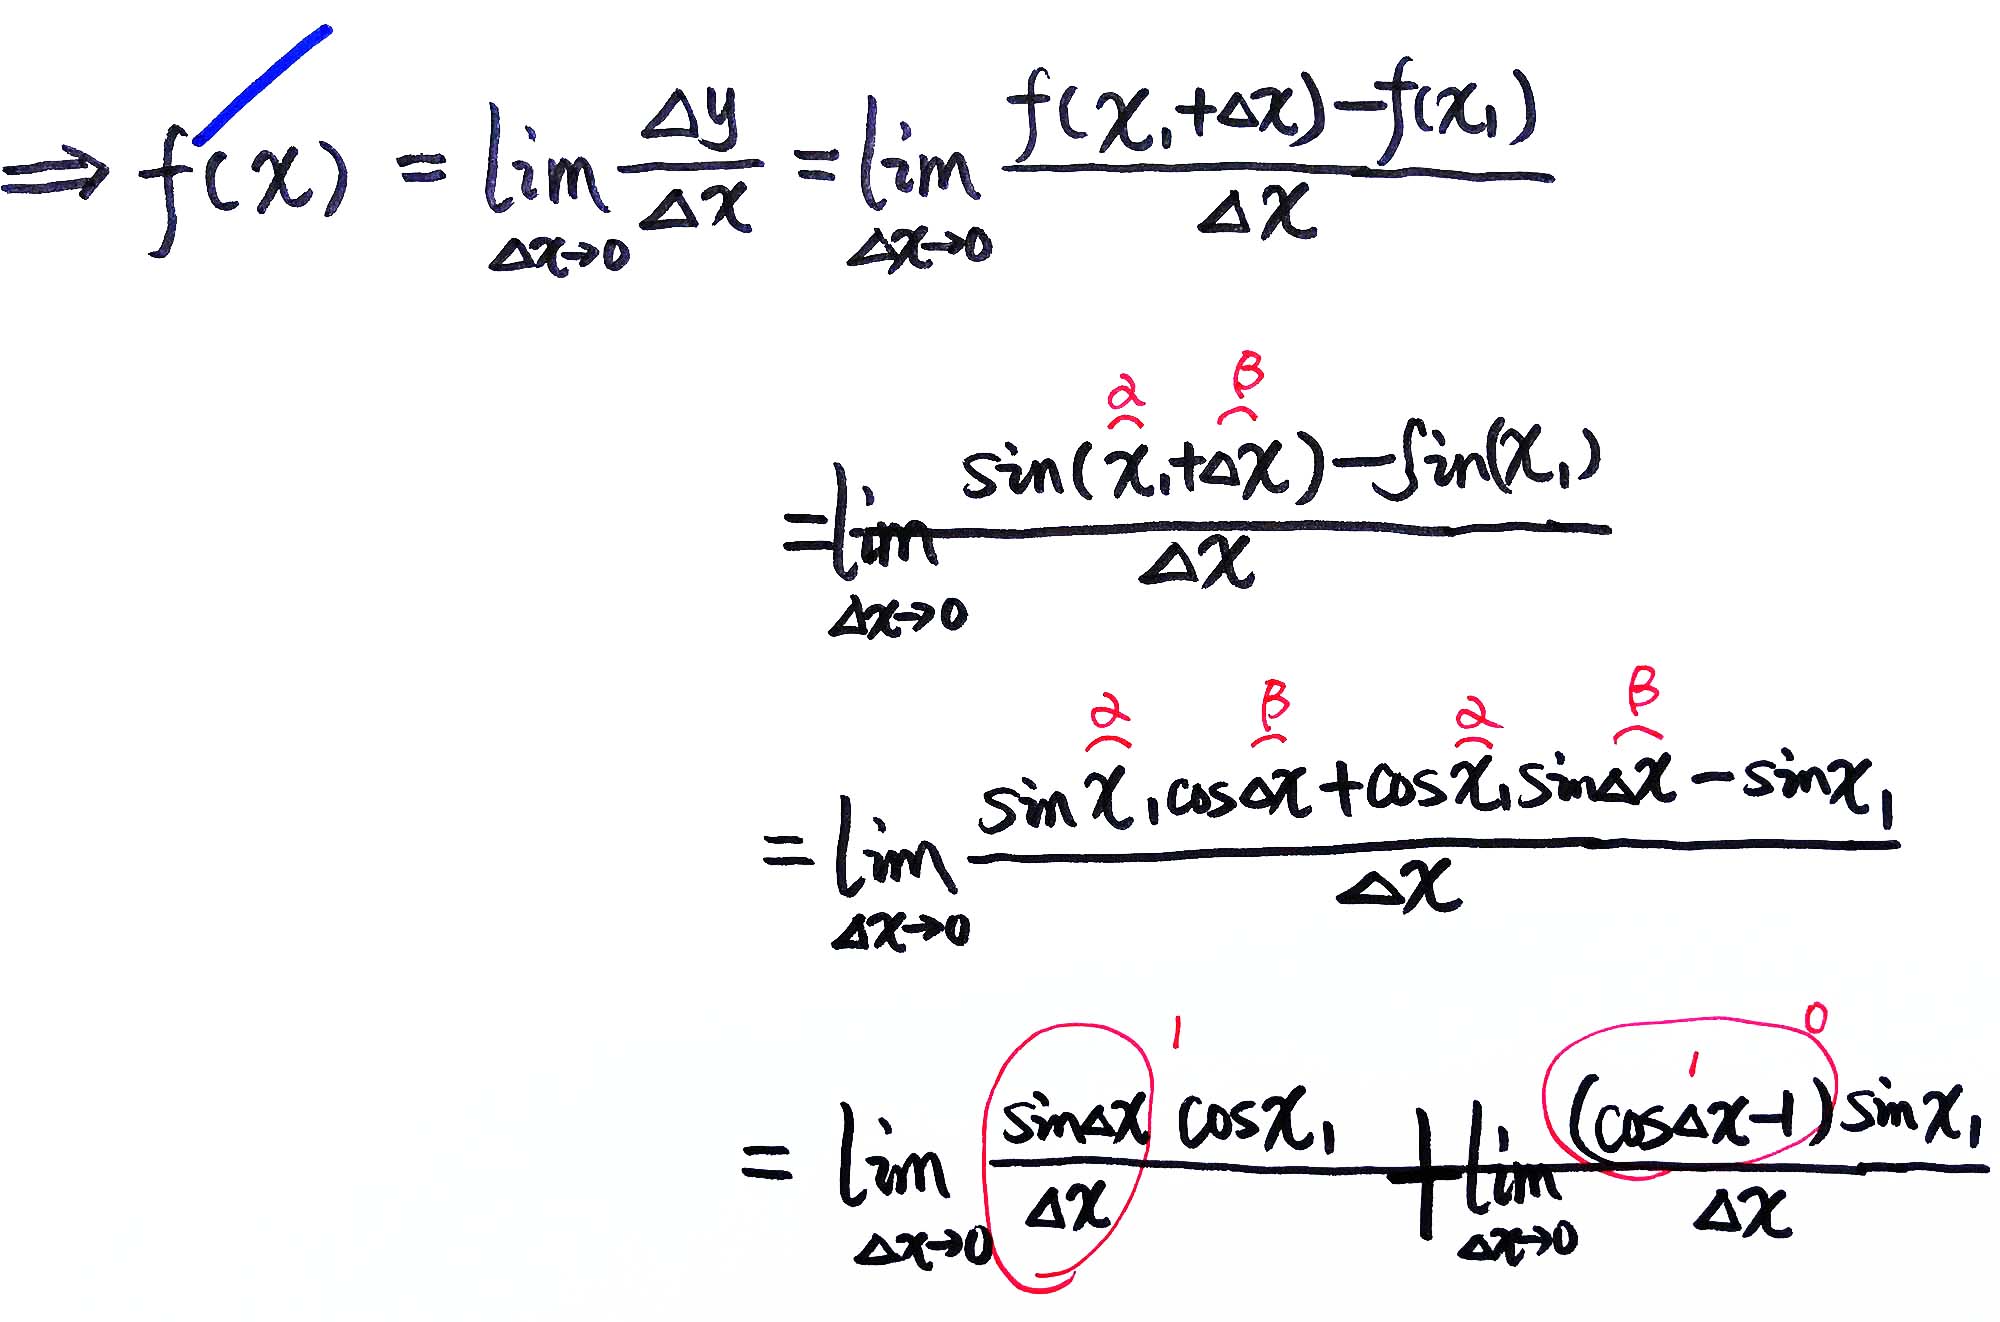 ⇒ f'(x) = lim_{Δx→0} Δy/Δx = lim_{Δx→0} (f(x₁+Δx)-f(x₁))/Δx
α β
= lim_{Δx→0} (sin(x₁+Δx)-sin(x₁))/Δx
α β α β
= lim_{Δx→0} (sin x₁ cosΔx + cos x₁ sinΔx - sin x₁)/Δx
1 1 0
= lim_{Δx→0} (sinΔx cos x₁)/Δx + lim_{Δx→0} ((cosΔx-1) sin x₁)/Δx